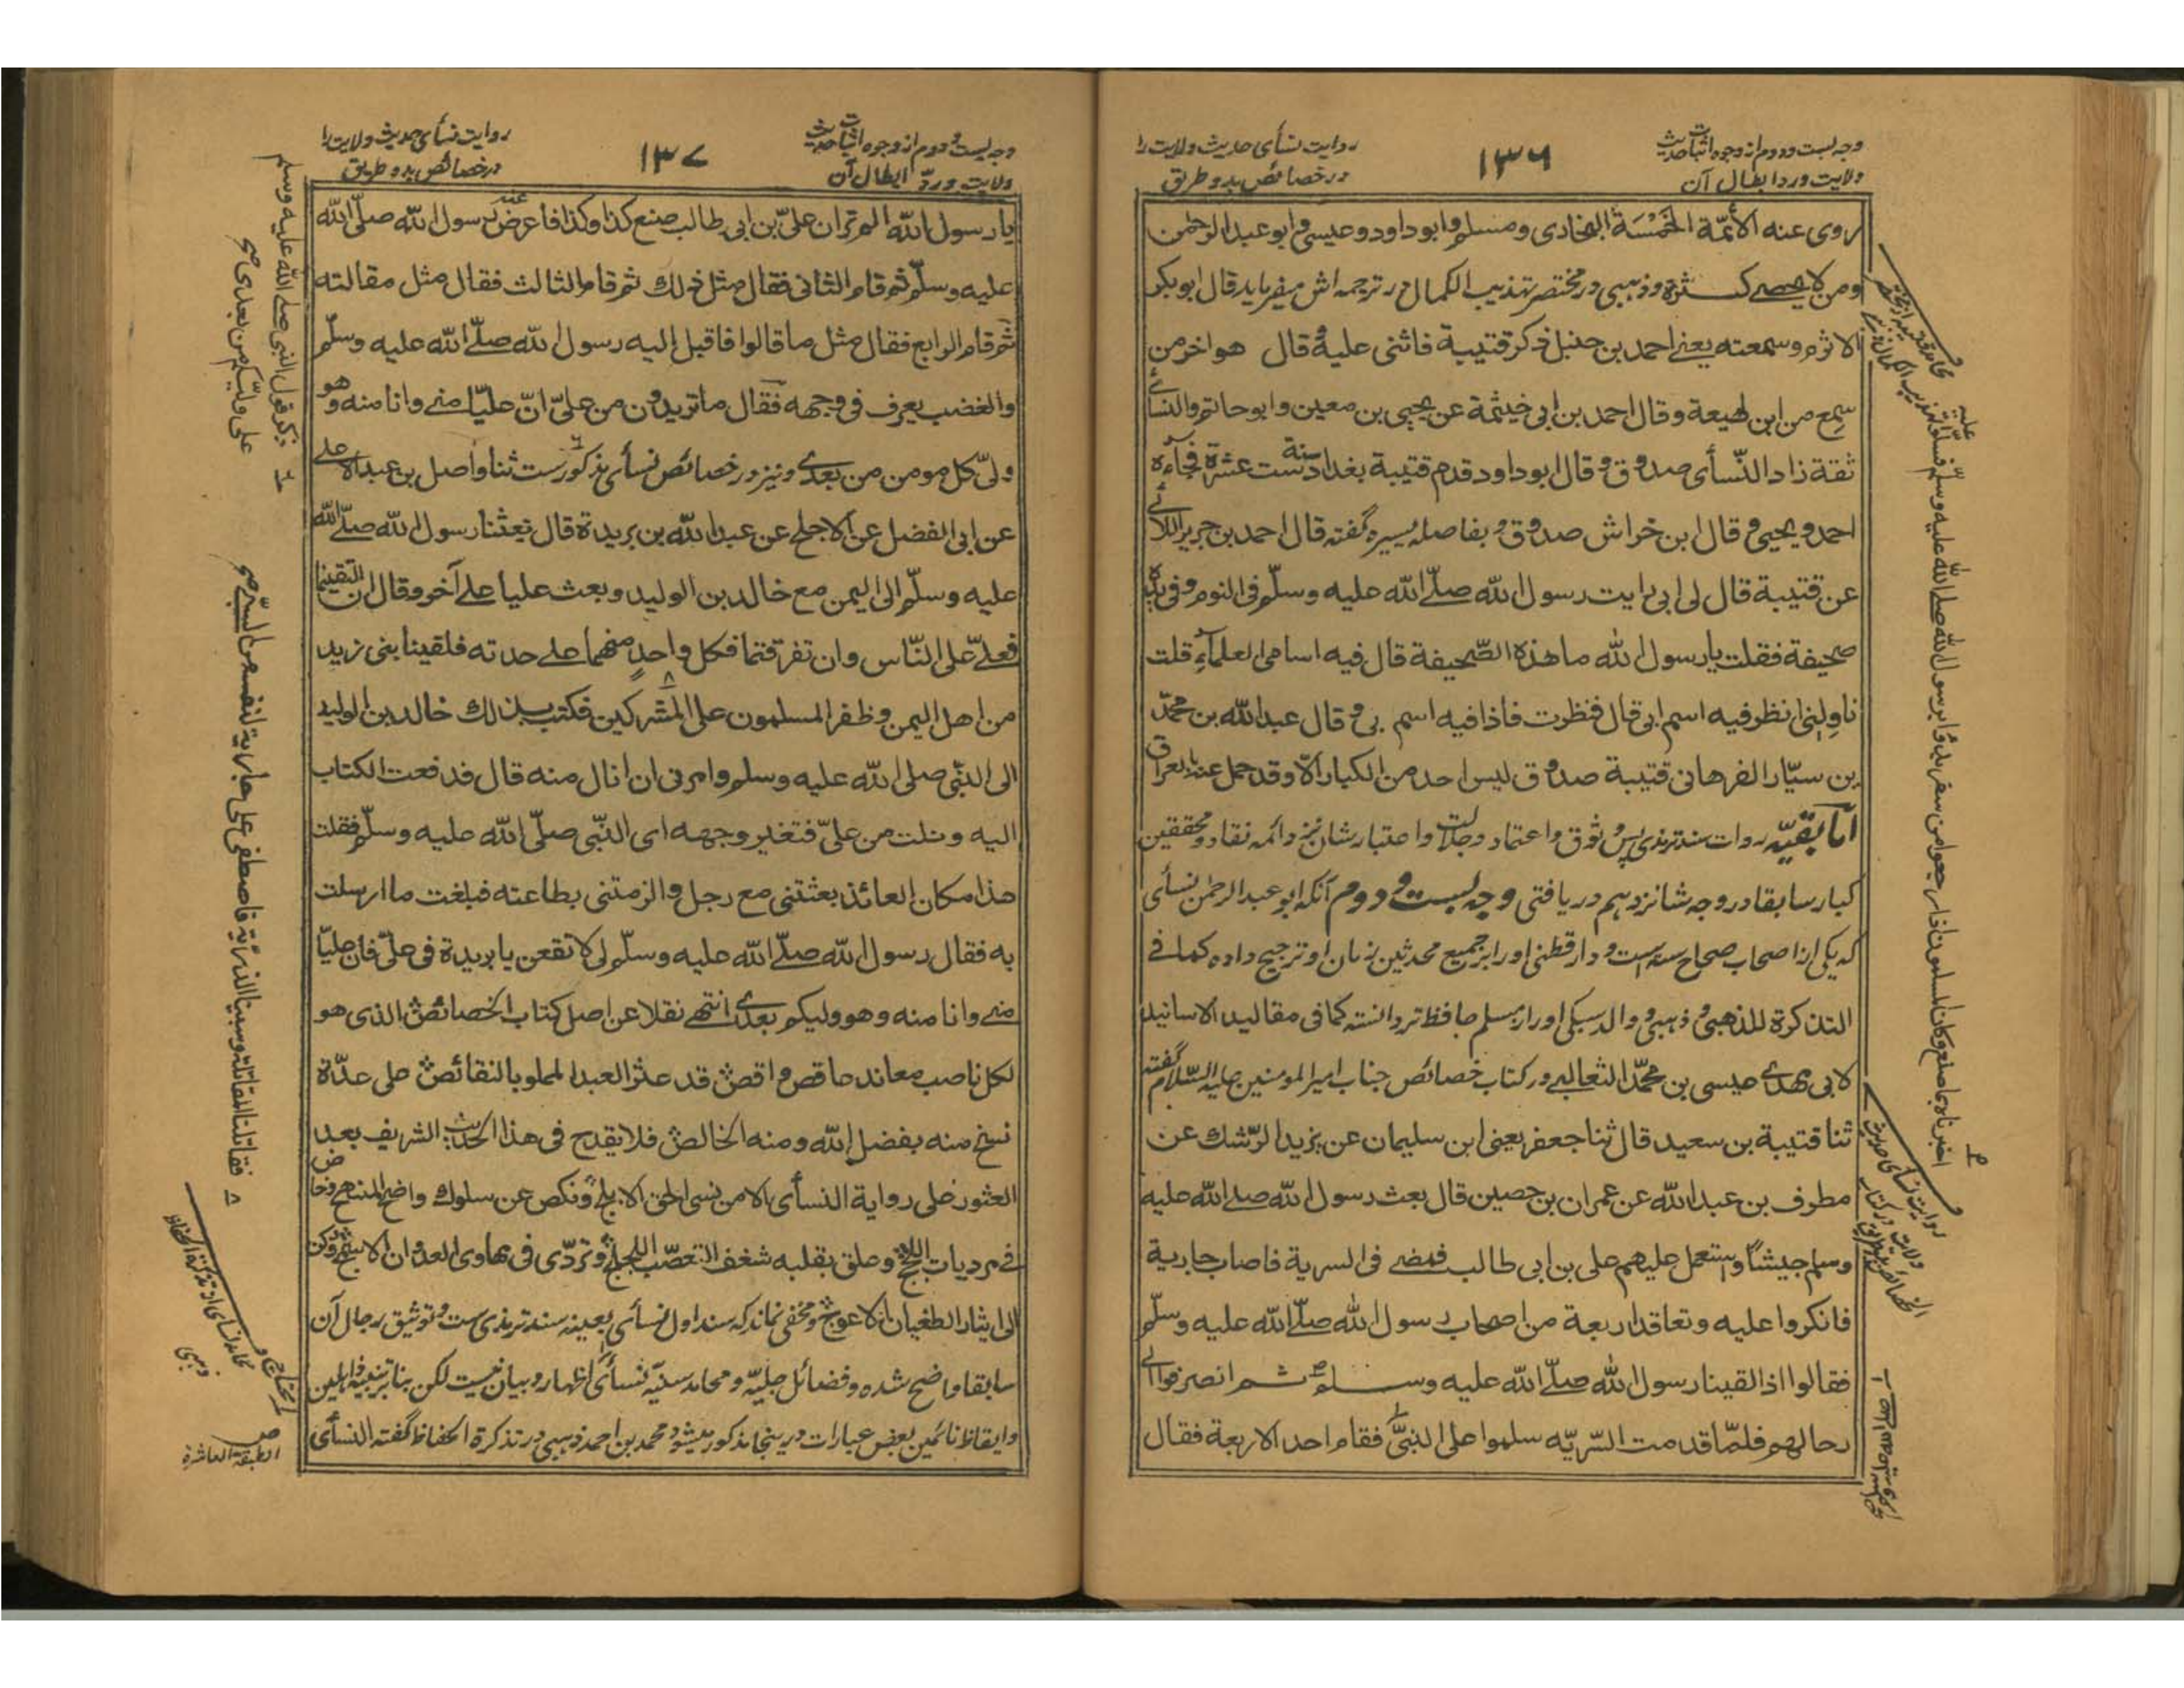 وجه بست ودوم از وجوه اثبات حدیث
ولایت ورد ابطال آن
۱۳۶
روایت نسأی حدیث ولایت را
در خصائص بدو طریق
روی عنه الأئمّة الخَمْسَة البخاری ومسلم وابو داود وعیسی وابو عبد الرحمن
ومن لا یحصے کثرة وذهبی در مختصر تهذیب الکمال در ترجمه اش میفرماید قال ابو بکر
الاثرم وسمعته یعنے احمد بن حنبل ذکر قتیبة فاثنی علیه وقال هو اخر من
سمع من ابن لهیعة وقال احمد بن ابی خیثمة عن یحیی بن معین وابو حاتم والنسأی
ثقة زاد النّسأی صدوق وقال ابو داود قدم قتیبة بغداد سنة ست عشرة فجاءه
احمد ویحیی وقال ابن خراش صدوق وبفاصله یسیره گفته قال احمد بن جریر اللآلی
عن قتیبة قال لی ابی رایت رسول الله صلّے الله علیه وسلّم فی النوم وفی یده
صحیفة فقلت یا رسول الله ما هذه الصّحیفة قال فیه اسامی العلماء قلت
ناولنی انظر فیه اسم ابنی قال فنظرت فاذا فیه اسم ابنی وقال عبد الله بن محمّد
بن سیّار الفرهانی قتیبة صدوق لیس احد من الکبار الّا وقد حمل عنه بالعراق
اما بقیّه روات سند ترمذی پس وثوق واعتماد وجلالت واعتبار شان نزد ائمه نقاد ومحققین
کبار سابقا در وجه شانزدهم دریافتی وجه بست ودوم آنکه ابو عبد الرحمن نسأی
که یکی از اصحاب صحاح سته است ودارقطنی اورا بر جمیع محدثین زمان او ترجیح داده کما فے
التذکرة للذهبی وذهبی ووالد سبکی اورا از مسلم حافظ تر دانسته کما فی مقالید الاسانید
لابی مهدے عیسی بن محمّد الثعالبے در کتاب خصائص جناب امیر المومنین علیه السّلام گفته
ثنا قتیبة بن سعید قال ثنا جعفر یعنی ابن سلیمان عن یزید الرّشک عن
مطرف بن عبد الله عن عمران بن حصین قال بعث رسول الله صلے الله علیه
وسلم جیشًا واستعمل علیهم علی بن ابی طالب فمضے فی السریة فاصاب جاریة
فانکروا علیه وتعاقد اربعة من اصحاب رسول الله صلّے الله علیه وسلّم
فقالوا اذا لقینا رسول الله صلّے الله علیه وسلم ثم انصرفوا الی
رحالهم فلمّا قدمت السّریّه سلموا علی النبیّ فقام احد الاربعة فقال
روایت نسأی حدیث
ولایت در کتاب
وجه بست ودوم از وجوه اثبات حدیث
ولایت وردّ ابطال آن
۱۳۷
روایت نسأی حدیث ولایت را
در خصائص بدو طریق
یا رسول الله الم تر ان علیّ بن ابی طالب صنع کذا وکذا فاعرض عنه رسول الله صلّی الله
علیه وسلّم ثم قام الثانی فقال مثل ذلك ثم قام الثالث فقال مثل مقالته
ثم قام الرابع فقال مثل ما قالوا فاقبل الیه رسول الله صلّے الله علیه وسلّم
والغضب یعرف فی وجهه فقال ما تریدون من علیّ انّ علیّا منے وانا منه وهو
ولیّ کل مومن من بعدے ونیز در خصائص نسأی مذکورست ثنا واصل بن عبد الاعلے
عن ابی الفضل عن الاجلح عن عبد الله بن بریدة قال بعثنا رسول الله صلّے الله
علیه وسلّم الی الیمن مع خالد بن الولید وبعث علیا علے آخر وقال ان التقیتما
فعلےّ علی النّاس وان تفرقتما فکل واحدٍ منهما علے حدته فلقینا بنی زبید
من اهل الیمن وظفر المسلمون علی المشرکین فکتب بذلك خالد بن الولید
الی النّبی صلی الله علیه وسلم وامرنی ان انال منه قال فدفعت الکتاب
الیه ونلت من علیّ فتغیر وجهه ای النّبی صلّی الله علیه وسلّم فقلت
هذا مکان العائذ بعثتنی مع رجل والزمتنی بطاعته فبلغت ما ارسلت
به فقال رسول الله صلّے الله علیه وسلّم لی لا تقعن یا بریدة فی علیّ فان علیّا
منے وانا منه وهو ولیکم بعدے انتهے نقلا عن اصل کتاب الخصائص الذی هو
لکل ناصب معاند عاقص واقص قد عثر العبد المملو بالنقائص علی عدّة
نسخ منه بفضل الله ومنه الخالص فلا یقدح فی هذا الحدیث الشریف بعد
العثور علی روایة النسأی الا من نسی الحق الابلج ونکص عن سلوك واضح المنهج وخاض
فے مردیات اللجج وعلق بقلبه شغف التعصّب اللجلج وتردّی فی مهاوی العدوان الاسمج ورکن
الی ایثار الطغیان الاعوج ومخفی نماند که سند اول نسأی بعینه سند ترمذی ست وتوثیق رجال آن
سابقا واضح شده وفضائل جلیّه ومحامد سنیّه نسأی محتاج اظهار وبیان نیست لکن بنا بر تنبیه غافلین
وایقاظ نائمین بعض عبارات درینجا مذکور میشود محمد بن احمد ذهبی در تذکرة الحفاظ گفته النسأی
ذکر قول النبی صلے الله علیه وسلم
علی ولیّکم من بعدی صح
فقاتلنا المقاتلة وسبینا الذریّة فاصطفی علی جاریة لنفسه من السّبی صح
محامد نسأی از تذکرة الحفاظ
ذهبی
الطبقة العاشرة